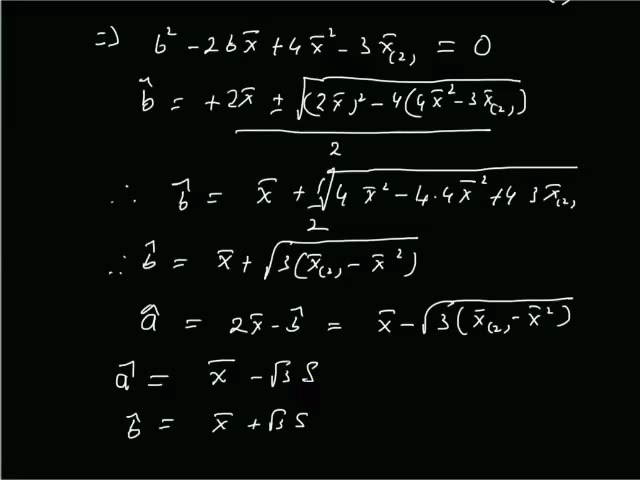 ⇒ b² - 2b x̄ + 4x̄² - 3x̄₍₂₎ = 0
b̂ = +2x̄ ± √((2x̄)² - 4(4x̄² - 3x̄₍₂₎)) / 2
∴ b̂ = x̄ + 1/2 √(4 x̄² - 4·4x̄² + 4 3x̄₍₂₎)
∴ b̂ = x̄ + √(3(x̄₍₂₎ - x̄²))
â = 2x̄ - b̂ = x̄ - √(3(x̄₍₂₎ - x̄²))
â = x̄ - √3 S
b̂ = x̄ + √3 S